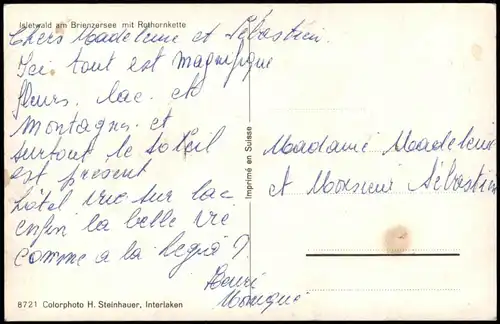 Iseltwald am Brienzersee mit Rothornkette
Chers Madeleine et Sébastien.
Ici tout est magnifique
fleurs. lac. et
montagnes. et
surtout le soleil
est présent
hôtel vue sur lac
enfin la belle vie
comme a la
Henri
Monique
8721 Colorphoto H. Steinhauer, Interlaken
Imprimé en Suisse
Madame Madeleine
et Monsieur Sébastien